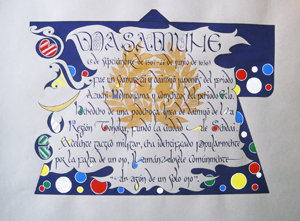 MASAMUNE
(5 de Septiembre de 1567 - 27 de junio de 1636)
fue un Samurái y daimyō japonés del periodo
Azuchi-Momoyama y comienzos del periodo Edo.
Heredero de una poderosa línea de daimyō de la
Región Tohoku, fundó la ciudad de Sendai.
Excelente táctico militar, era identificado popularmente
por la falta de un ojo, llamándosele comúnmente
dragón de un solo ojo"